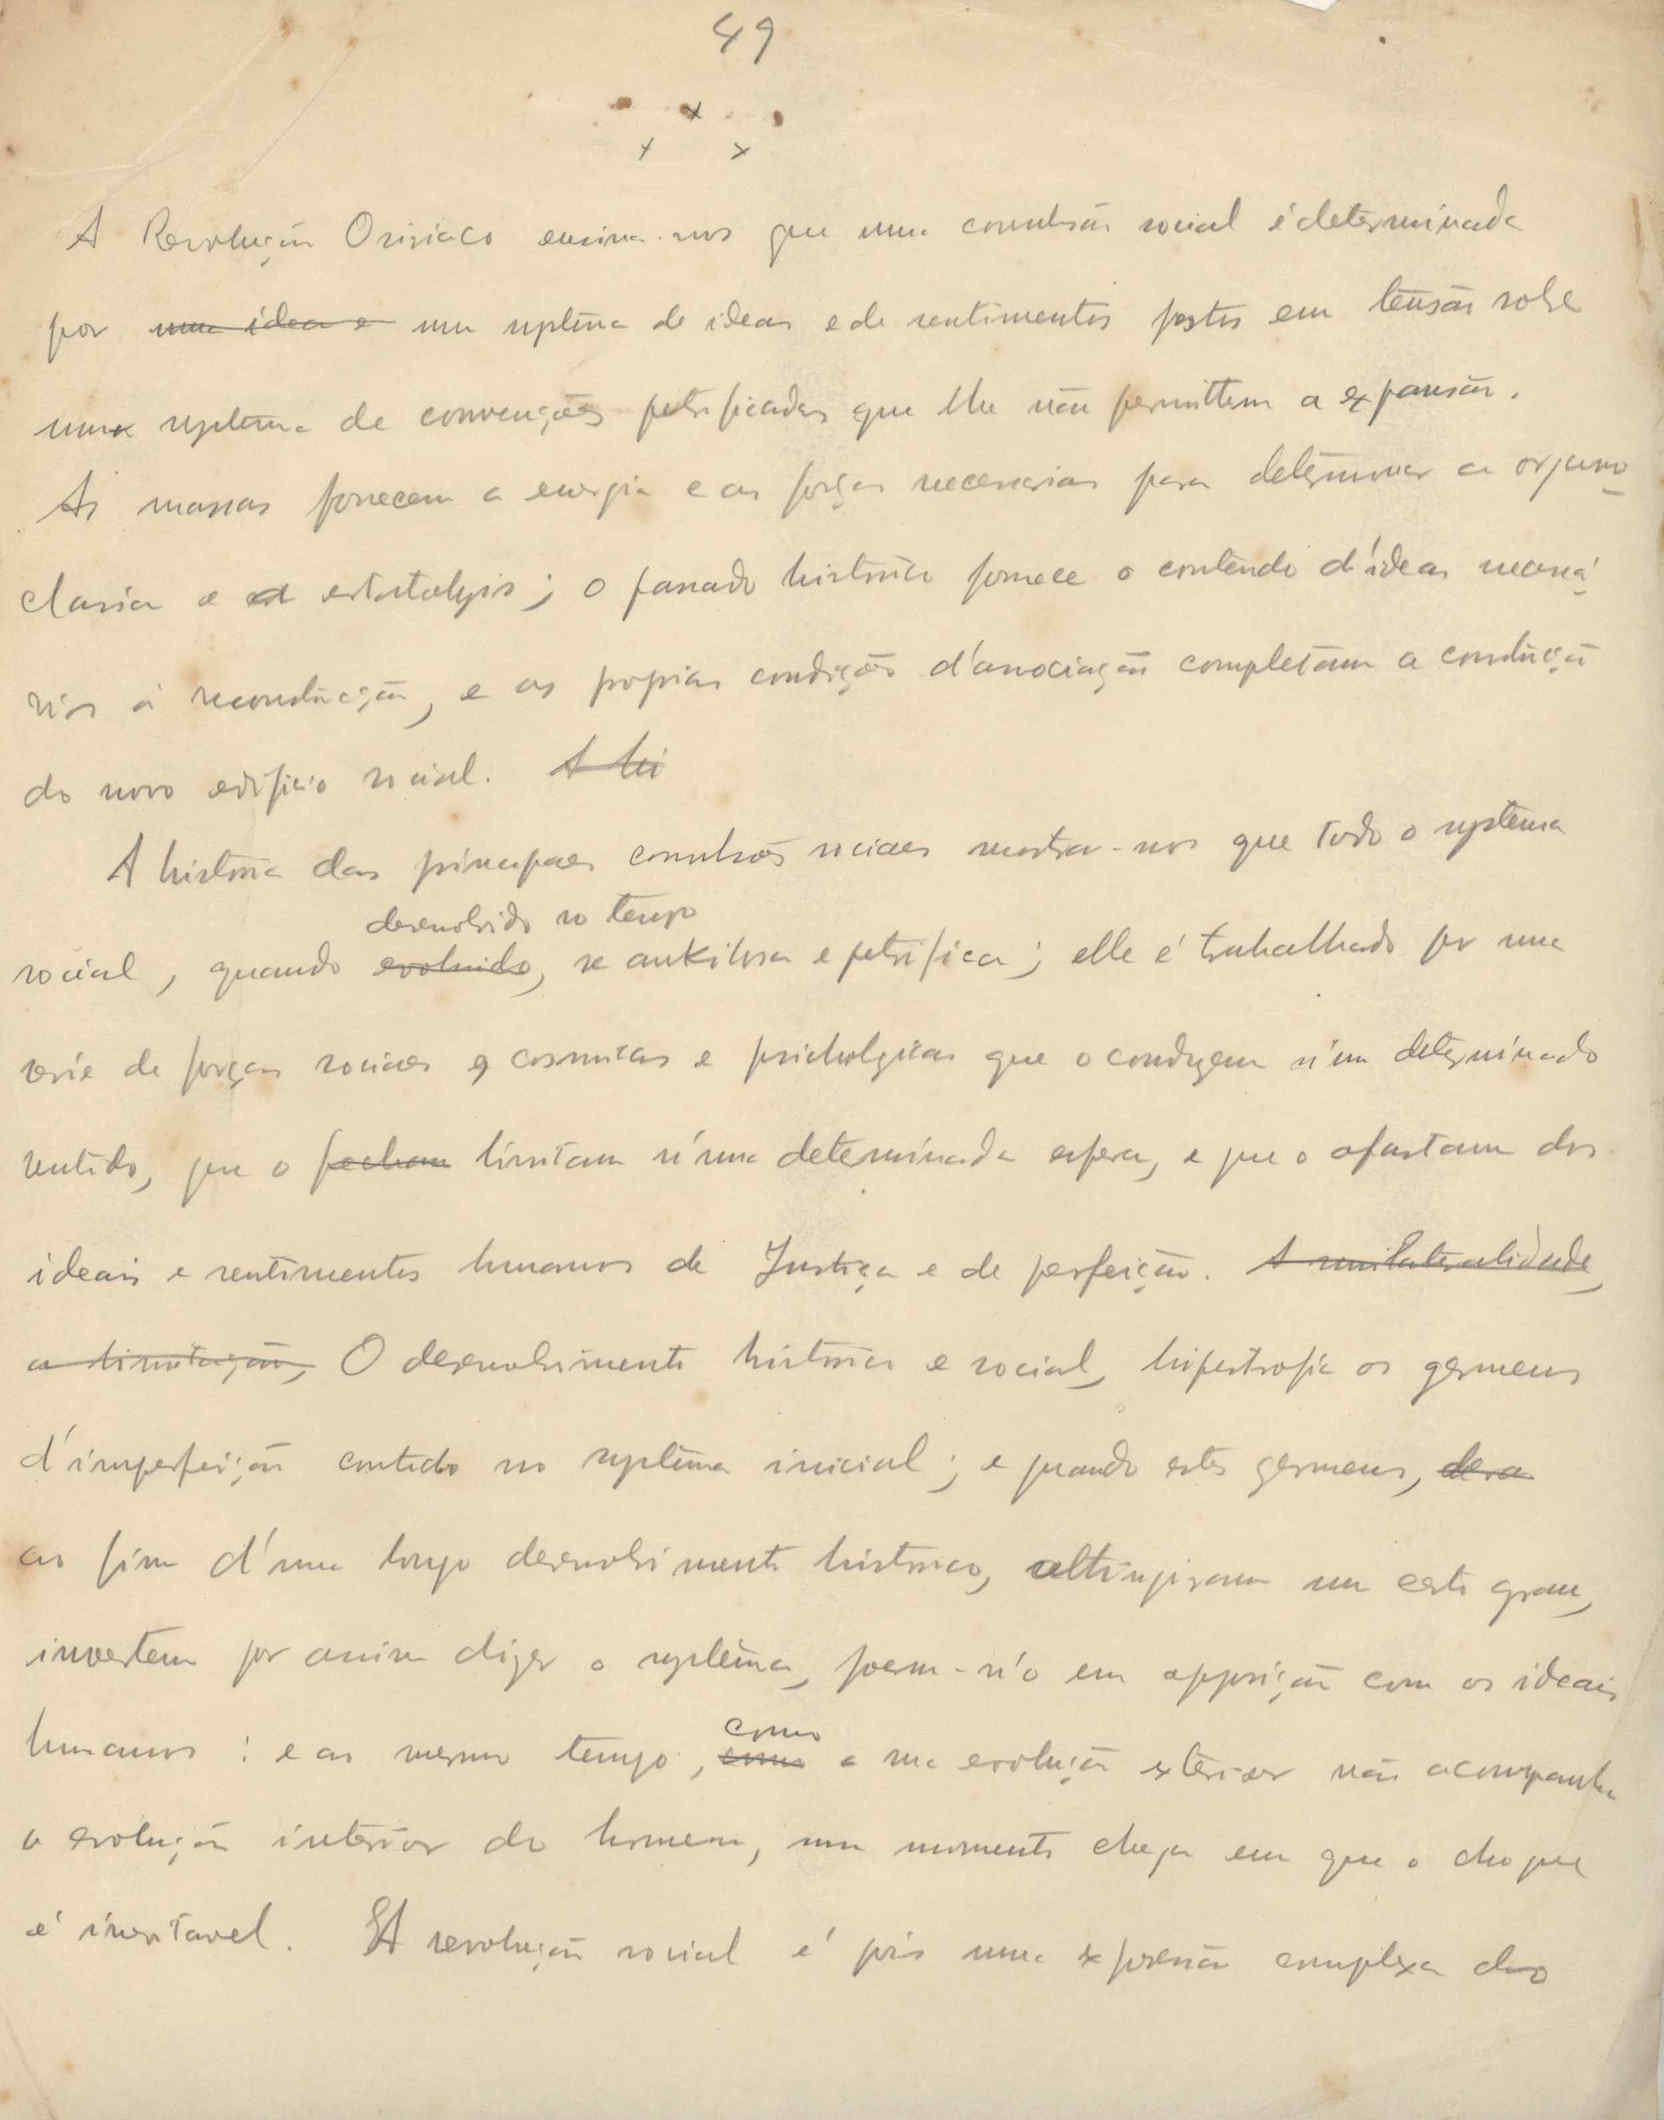 49
x
x x
A Revolução Osiriaca ensina-nos que uma convulsão social é determinada
por uma idea e um systema de ideas e de sentimentos postos em tensão sobre
um systema de convenções petrificadas que lhe não permittem a expansão.
As massas fornecem a energia e as forças necessarias para determinar a
classica e ; o passado historico fornece o conteudo d'ideas necessá-
rias á reconstrucção, e as proprias condições d'associação completam a construcção
do novo edificio social. A lei
A historia das principaes convulsões sociaes mostra-nos que todo o systema
desenvolvido no tempo
social, quando evoluido, se ankilosa e petrifica; elle é trabalhado por uma
serie de forças sociaes e cosmicas e psichologicas que o conduzem n'um determinado
sentido, que o fecham limitam n'uma determinada esfera, e que o afastam dos
ideais e sentimentos humanos de Justiça e de perfeição. A unilateralidade,
a limitação, O desenvolvimento historico e social, hipertrofia os germens
d'imperfeição contidos no systema inicial; e quando estes germens,
ao fim d'um longo desenvolvimento historico, attingiram um certo grau,
invertem por assim dizer o systema, poem-n'o em opposição com os ideais
humanos : e ao mesmo tempo, como
como a sua evolução exterior não acompanha
a evolução interior do homem, um momento chega em que o choque
é inevitavel. A revolução social é pois uma expressão complexa do